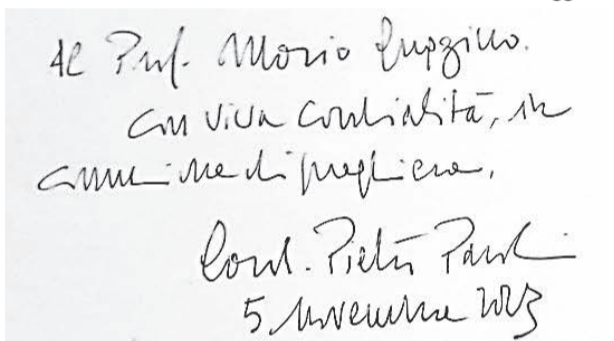 Al Prof. Mario
con viva cordialità, in
comunione di preghiera.
Card. Pietro Parolin
5 novembre 2023